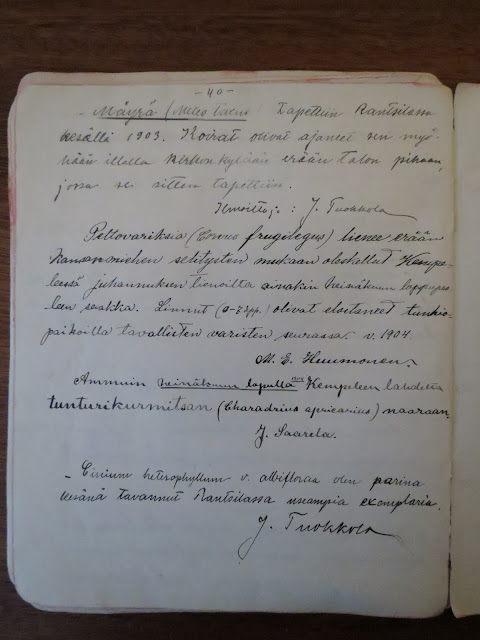 - 40 -
- Mäyrä (Meles taxus) tapettiin Rantsilassa
kesällä 1903. Koirat olivat ajaneet sen myö-
hään illalla kirkonkylään erään talon pihaan,
jossa se sitten tapettiin.
Ilmoittaja: J. Tuokkola
Peltovariksia (Corvus frugilegus) lienee erään
kansanmiehen selitysten mukaan oleskellut Kempe-
leessä juhannuksen tienoilta ainakin heinäkuun loppupuo-
leen saakka. Linnut (6-7 kpp.) olivat elostaneet tunkio-
paikoilla tavallisten varisten seurassa. v. 1904.
M. E. Huumonen.
Ammuin heinäkuun lopulla Kempeleen lahdelta
tunturikurmitsan (Charadrius apricarius) naaraan.
J. Saarela.
- Cirsium heterophyllum v. albifloraa olen parina
kesänä tavannut Rantsilassa useampia exemplaria.
J. Tuokkola